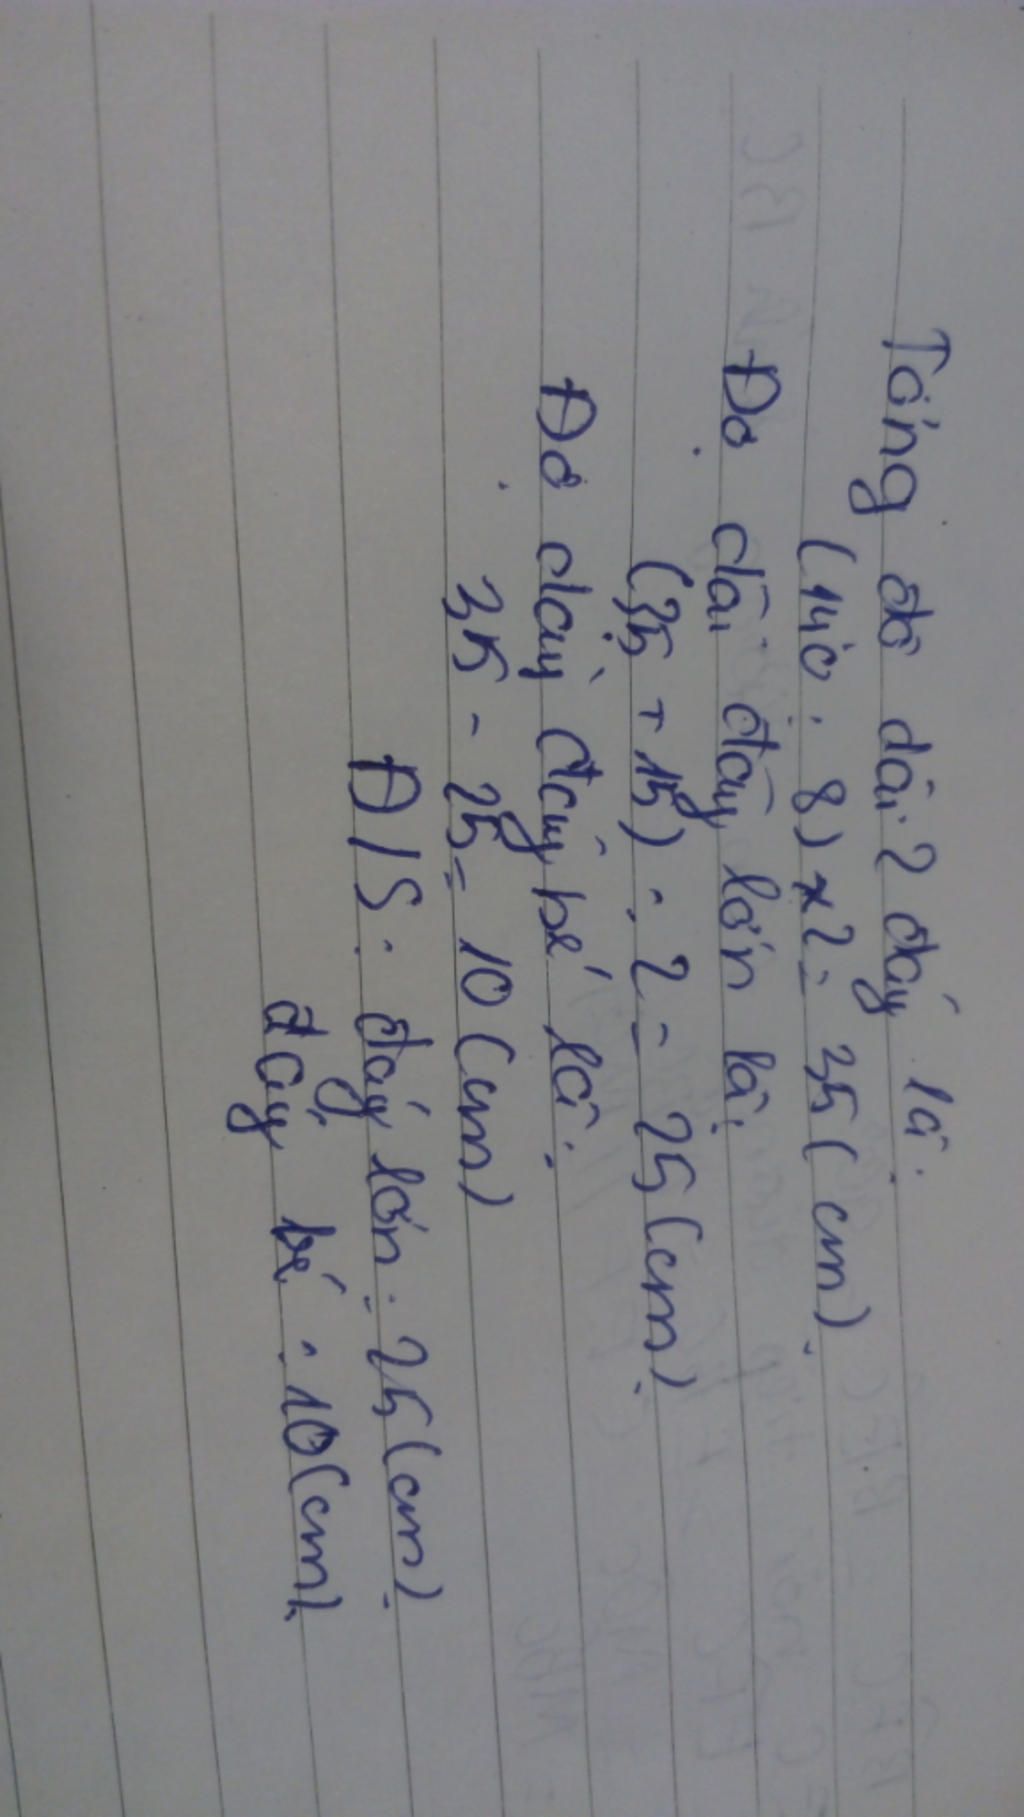 Tổng độ dài 2 đáy là:
(140 : 8) x 2 = 35 (cm)
Độ dài đáy lớn là:
(35 + 15) : 2 = 25 (cm)
Độ dài đáy bé là:
35 - 25 = 10 (cm)
Đ/S: đáy lớn: 25 (cm)
đáy bé: 10 (cm)